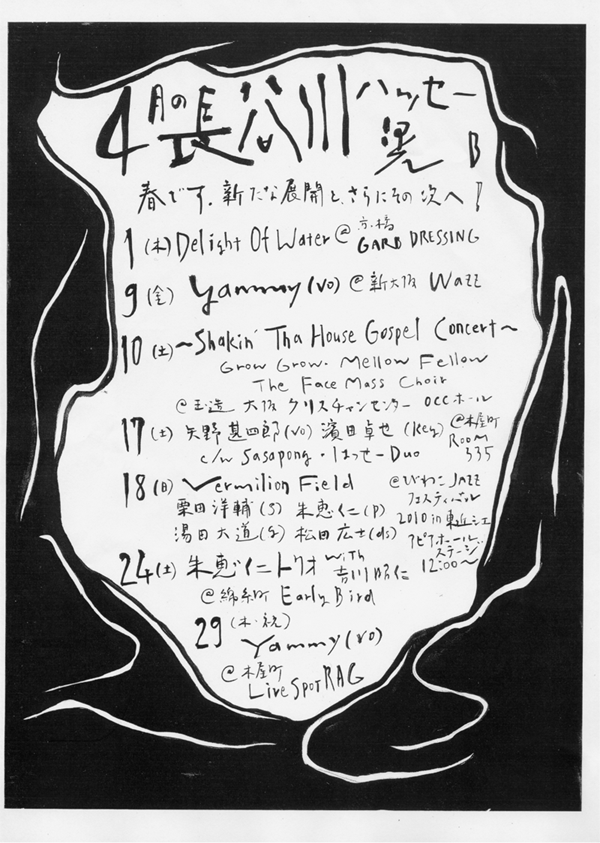 4月の長谷川ハッセー晃 B
春です。新たな展開と、さらにその次へ!
1(木) Delight Of Water @ 京橋 GARB DRESSING
9(金) Yammy(vo) @ 新大阪 Wazz
10(土) ~Shakin' Tha House Gospel Concert~
Grow Grow. Mellow Fellow
The Face Mass Choir
@玉造 大阪クリスチャンセンター OCCホール
17(土) 矢野甚四郎(vo) 濱田卓也(key) @木屋町 Room 335
c/w Sasapong・はっせーDuo
18(日) Vermilion Field @びわこJAZZフェスティバル
栗田洋輔(S) 朱恵仁(P) 2010 in 東近江
湯田大道(g) 松田広士(ds) アピアホールステージ 12:00~
24(土) 朱恵仁トリオ with 吉川昭仁
@錦糸町 Early Bird
29(木・祝) Yammy(vo)
@木屋町 Live Spot RAG